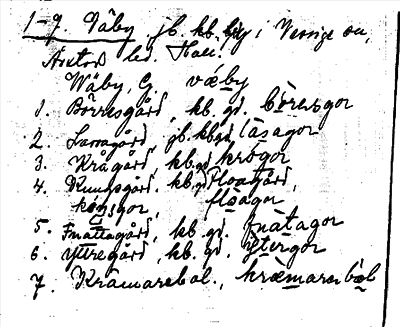 1-9. Väby jb. kb. by i Sverige
Axtorp led. Hall.
Wäby, Cj väby
1. Börresgård, kb. gd. börersgor
2. Lassagård jb. kb. gd. lasagor
3. Krågård, kb. gd krogor
4. Kungsgård. kb. gd Ploagård,
kongsgor, floagor
5. Fnattagård, kb. gd. fnatagor
6. Yttregård, kb. gd. ytergor
7. Krämarebol., kræmarebol